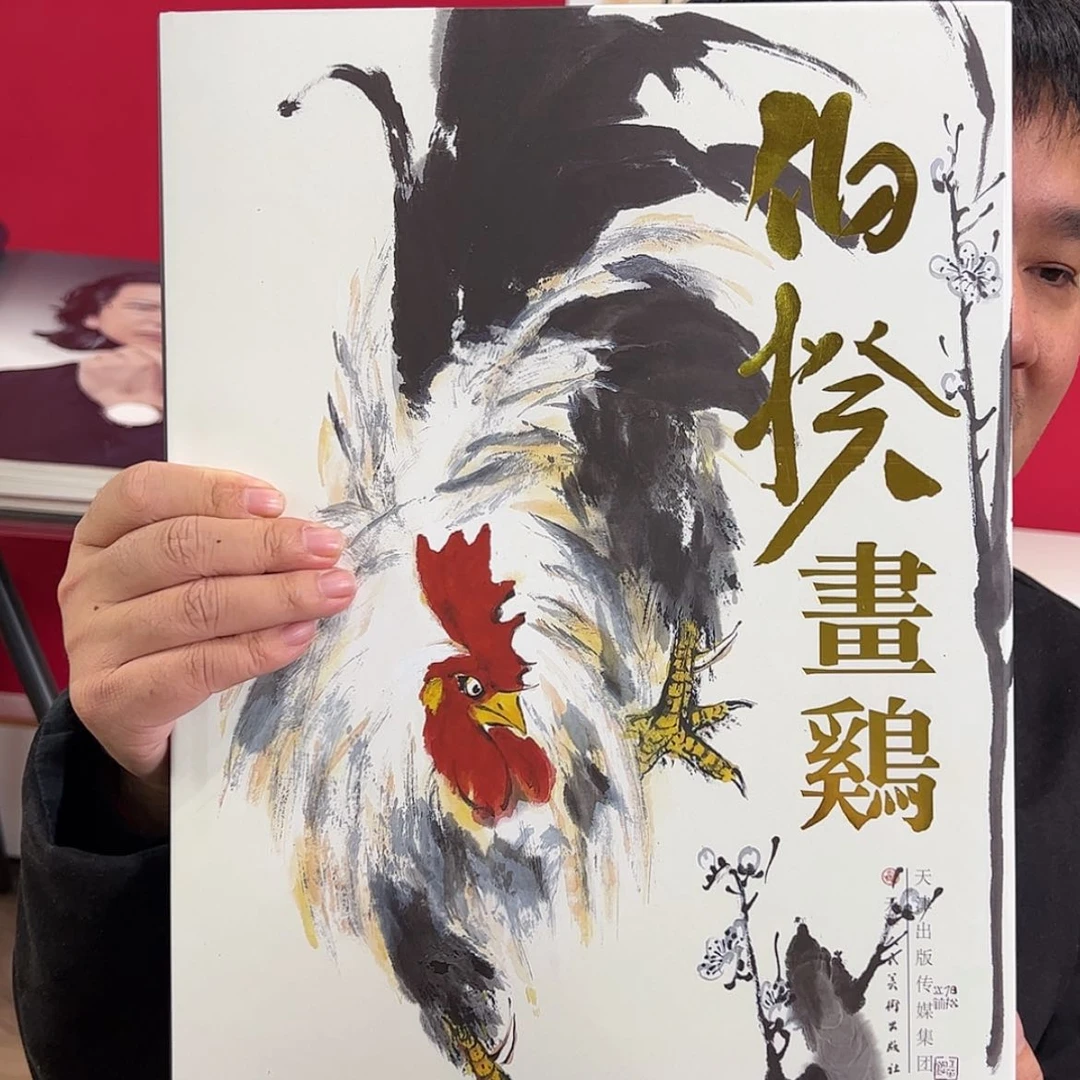 伯揆畫鷄
天津出版传媒集团
美術出版社